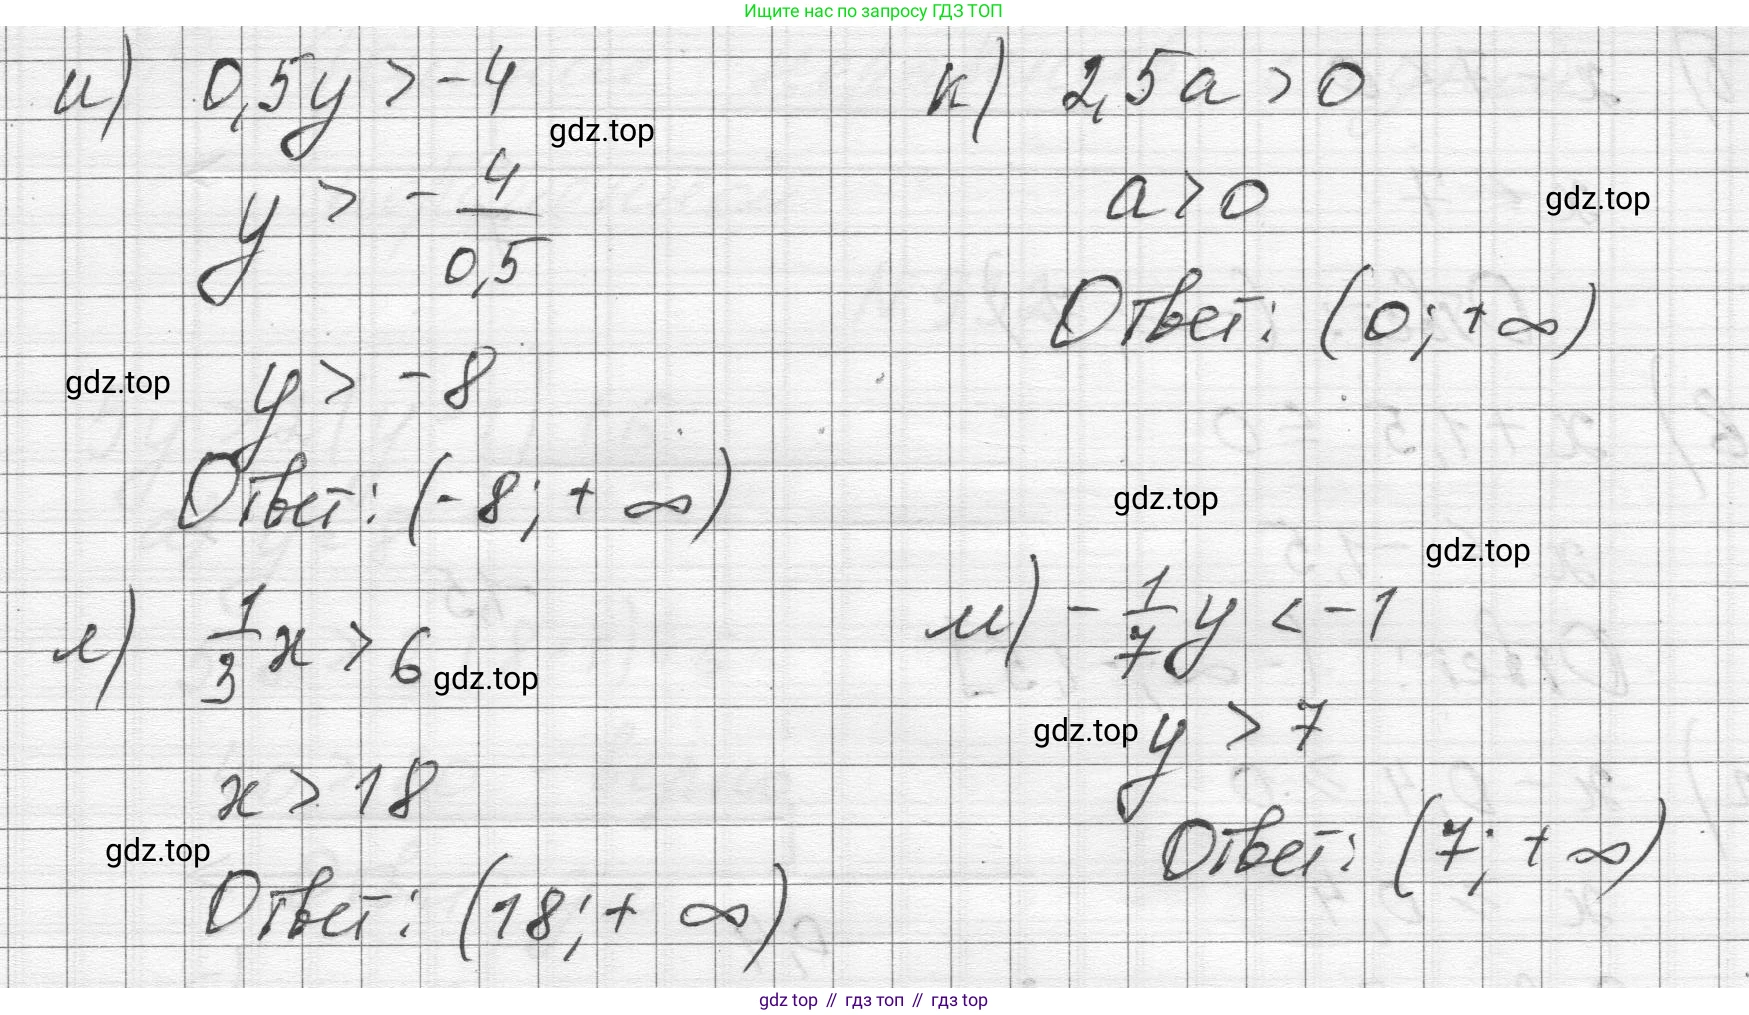 Ищите нас по запросу ГДЗ ТОП
и) 0,5y > -4
gdz.top
y > - 4/0,5
y > -8
gdz.top
Ответ: (-8; +∞)
к) 2,5a > 0
a > 0
gdz.top
Ответ: (0; +∞)
gdz.top
gdz.top
л) 1/3 x > 6
gdz.top
x > 18
gdz.top
Ответ: (18; +∞)
м) - 1/7 y < -1
gdz.top
y > 7
Ответ: (7; +∞)
gdz top // гдз топ // гдз top